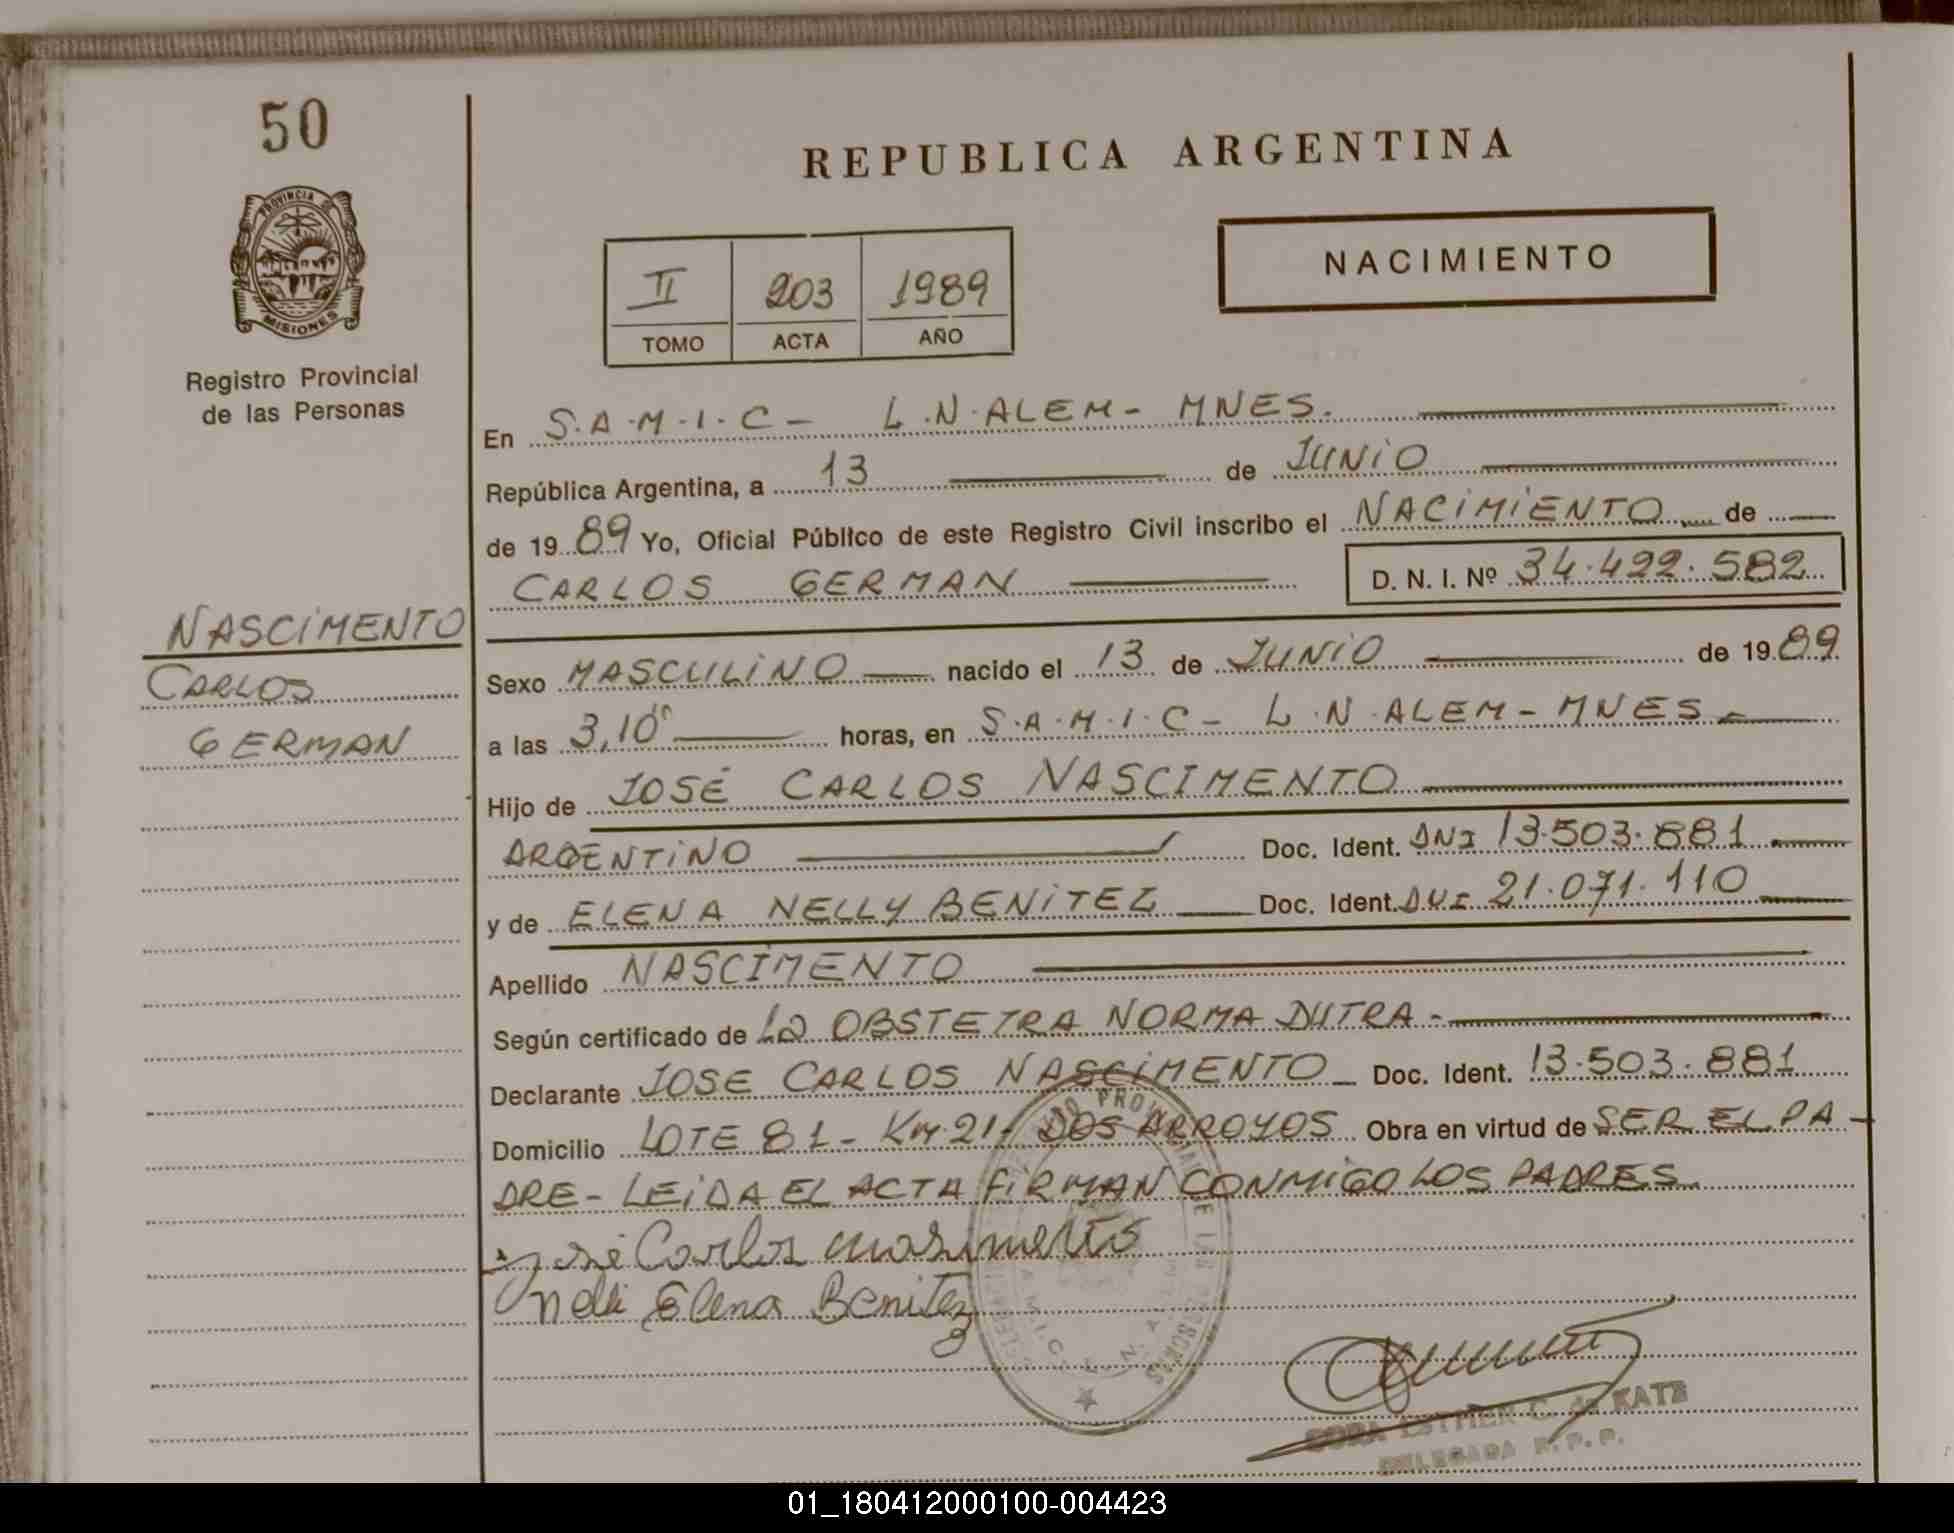 50
PROVINCIA DE
MISIONES
Registro Provincial
de las Personas
NASCIMENTO
CARLOS
GERMAN
REPUBLICA ARGENTINA
II 203 1989
TOMO ACTA AÑO
NACIMIENTO
En S.A.M.I.C - L.N.ALEM - MNES.
República Argentina, a 13 de JUNIO
de 1989 Yo, Oficial Público de este Registro Civil inscribo el NACIMIENTO de
CARLOS GERMAN D. N. I. Nº 34.422.582
Sexo MASCULINO nacido el 13 de JUNIO de 1989
a las 3,10 horas, en S.A.M.I.C - L.N.ALEM - MNES -
Hijo de JOSÉ CARLOS NASCIMENTO
ARGENTINO Doc. Ident. DNI 13.503.881
y de ELENA NELLY BENITEZ Doc. Ident. DNI 21.071.110
Apellido NASCIMENTO
Según certificado de La OBSTETRA NORMA DUTRA -
Declarante JOSE CARLOS NASCIMENTO Doc. Ident. 13.503.881
Domicilio LOTE 81 - Km 21 - DOS ARROYOS Obra en virtud de SER EL PA -
DRE - LEIDA EL ACTA FIRMAN CONMIGO LOS PADRES.
José Carlos nasimento
Nelli Elena Benitez
ESTHER C. de KATZ
DELEGADA R. P. P.
01_180412000100-004423